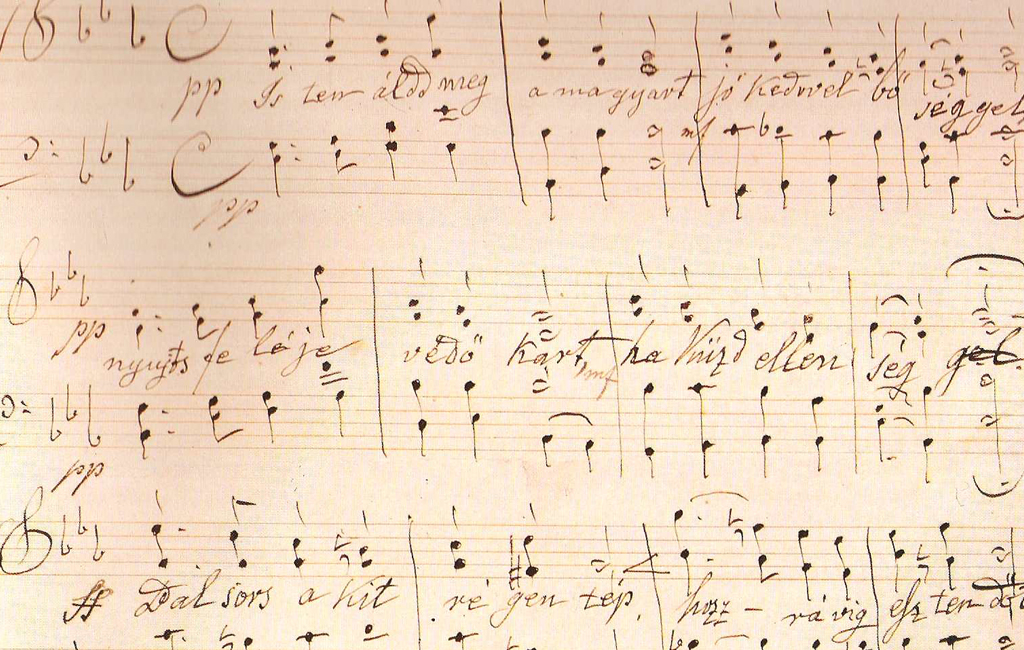 pp Is ten áldd meg a magyart mf jó kedvvel bő séggel
pp
pp nyujts fe léje védő kart, mf ha küzd ellen ség gel.
pp
ff Bal sors a kit ré gen tép, hozz - rá víg esz ten dőt